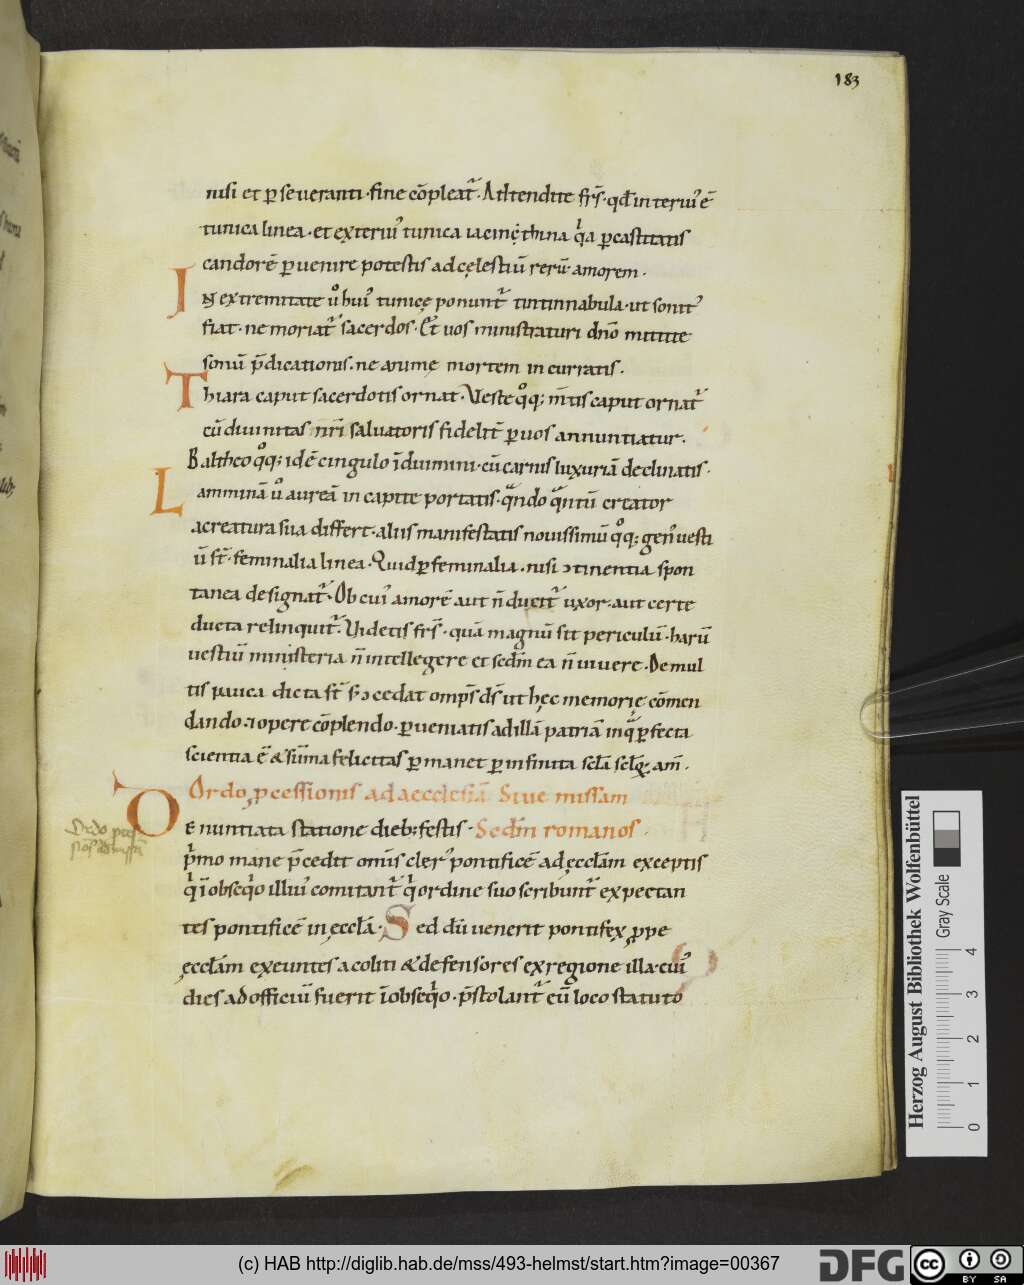 183
nisi et ꝑseueranti fine cōpleat᷑. Adtendite fr̄s. qđ interiꝰ ē
tunica linea. et exteriꝰ tunica iacinc̨thina qͥa ꝑcastitatis
candorē ꝑuenire potestis ad cęlestiū rerū amorem.
IN extremitate ů huiꝰ tunicę ponunt᷑ tintinnabula. ut sonitꝰ
fiat. ne moriat᷑ sacerdos. Et uos ministraturi dn̄o mittite
sonū p̄dicationis. ne animę mortem incurratis.
Thiara caput sacerdotis ornat. Veste qͦq; m̄tis caput ornat᷑
cū diuinitas nr̄i saluatoris fidelit̄ ꝑuos annuntiatur.
Baltheo qͦq; id ē cingulo īduimini. cū carnis luxuriā declinatis.
Lamminā ů aureā in capite portatis. qᵃndo qᵃntū creator
a creatura sua differt. aliis manifestatis nouissimū qͦq; genꝰ uesti
ū st̄. feminalia linea. Quid ꝑ feminalia. nisi ɔtinentia spon
tanea designat᷑. Ob cuiꝰ amorē aut n̄ ducit᷑ uxor. aut certe
ducta relinquit᷑. Videtis fr̄s. quā magnū sit periculū. harū
uestiū ministeria n̄ intellegere et sedm̄ ea n̄ uiuere. De mul
tis pauca dicta st̄ s; ɔcedat omp̄s dſ̄ ut hęc memorię cōmen
dando. ⁊ opere cōplendo. ꝑueniatis ad illā patriā in qᵃ ꝑfecta
scientia ē & sūma felicitas ꝑmanet ꝑ infinita scl̄a scl̄oꝝ. am̄.
Ordo ꝓcessionis ad aecclesiā Siue missam
DEnuntiata statione dieb; festis. Sedm̄ romanos.
pͥmo mane p̄cedit omīs clerꝰ pontificē ad ęccl̄am exceptis
qͥ ī obseqͥo illiuꝰ comitant᷑ qͥ ordine suo scribunt᷑ expectan
tes pontificē in ęccl̄a. Sed dū uenerit pontifex ꝓpe
ęccl̄am exeuntes acoliti & defensores ex regione illa. cuiꝰ
dies ad officiū fuerit ī obseqͥo. p̄stolant᷑ eū loco statuto
Herzog August Bibliothek Wolfenbüttel
Gray Scale
0 1 2 3 4
(c) HAB http://diglib.hab.de/mss/493-helmst/start.htm?image=00367
DFG
cc BY SA